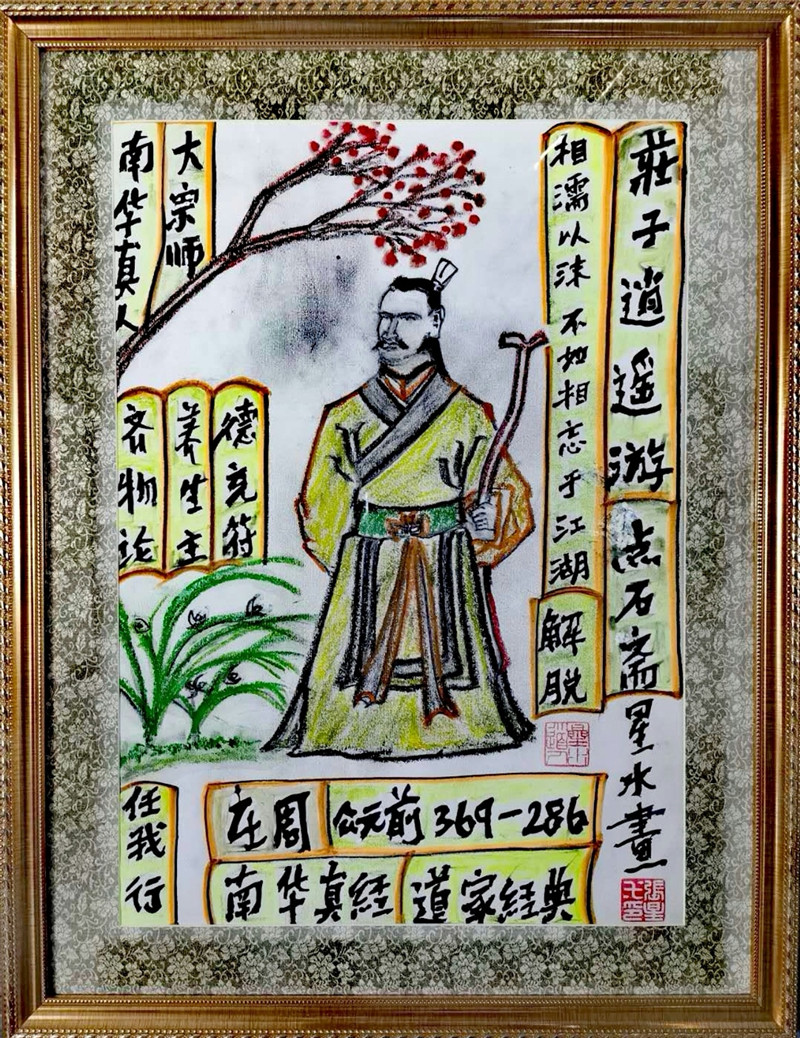 莊子逍遥游
点石斋
星水畫
相濡以沫不如相忘于江湖
解脱
大宗师
南华真人
德充符
养生主
齐物论
任我行
庄周
公元前369-286
南华真经
道家经典